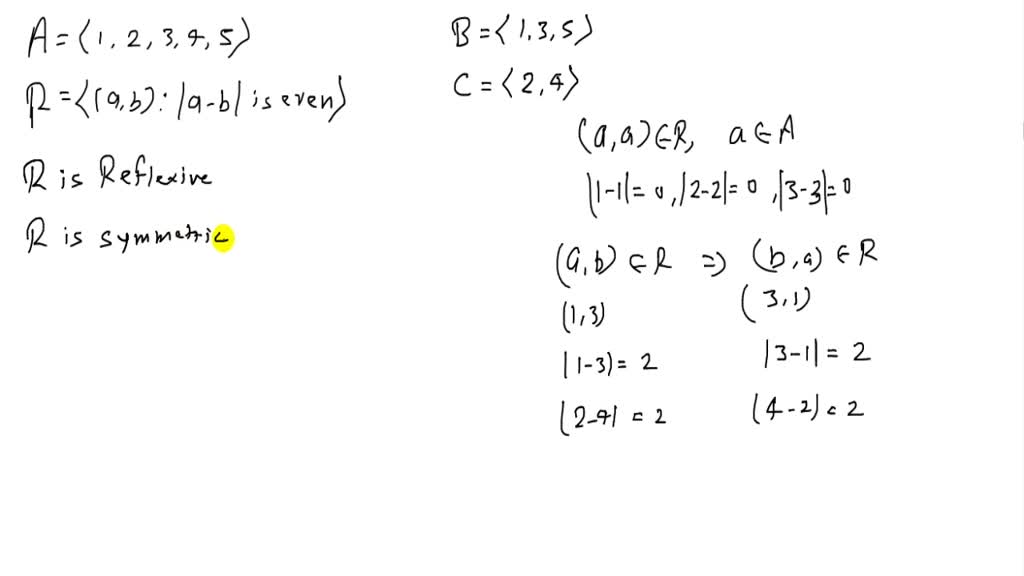 A = {1, 2, 3, 4, 5}
R = {(a,b) : |a-b| is even}
R is Reflexive
R is symmetric
B = {1,3,5}
C = {2,4}
(a,a) ∈ R, a ∈ A
|1-1| = 0, |2-2| = 0, |3-3| = 0
(a,b) ∈ R ⇒ (b,a) ∈ R
(1,3) (3,1)
|1-3| = 2 |3-1| = 2
|2-4| = 2 |4-2| = 2